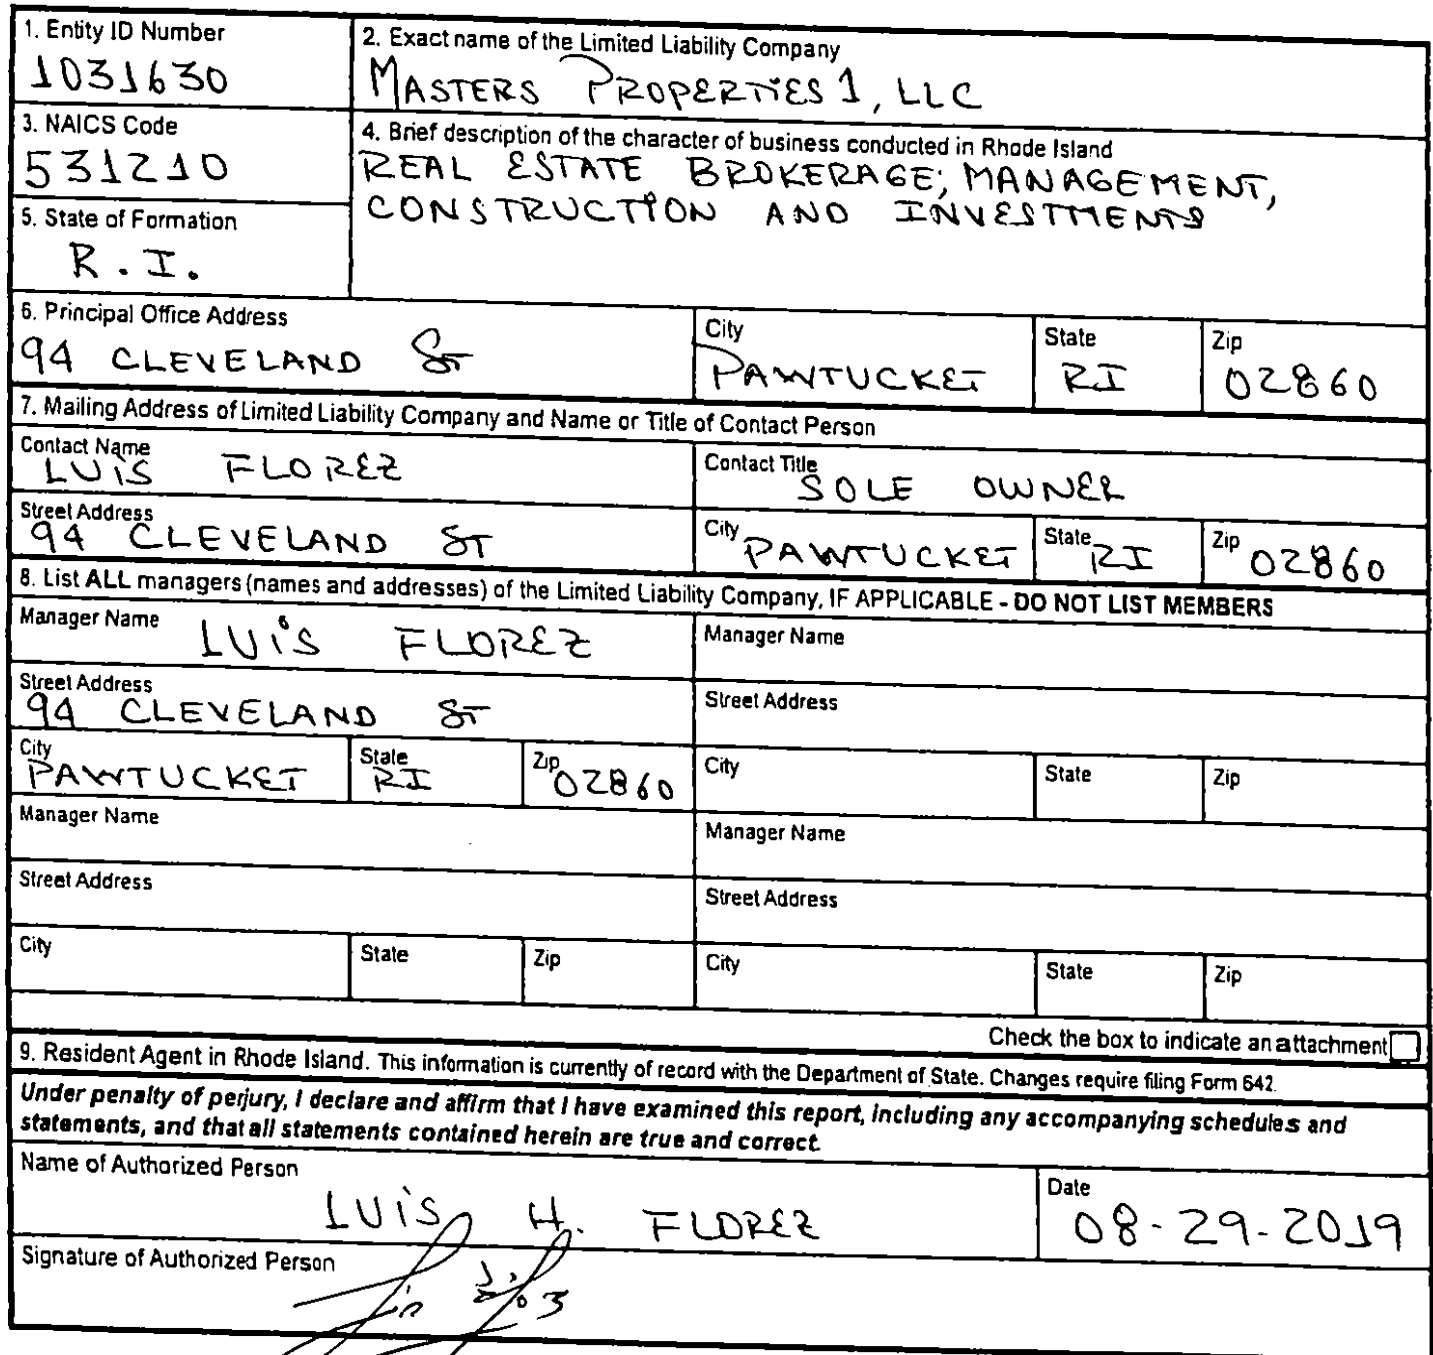 1. Entity ID Number
1031630
2. Exact name of the Limited Liability Company
MASTERS PROPERTIES 1, LLC
3. NAICS Code
531210
4. Brief description of the character of business conducted in Rhode Island
REAL ESTATE BROKERAGE; MANAGEMENT,
CONSTRUCTION AND INVESTMENTS
5. State of Formation
R.I.
6. Principal Office Address
94 CLEVELAND ST
City
PAWTUCKET
State
RI
Zip
02860
7. Mailing Address of Limited Liability Company and Name or Title of Contact Person
Contact Name
LUIS FLOREZ
Contact Title
SOLE OWNER
Street Address
94 CLEVELAND ST
City
PAWTUCKET
State
RI
Zip
02860
8. List ALL managers (names and addresses) of the Limited Liability Company, IF APPLICABLE - DO NOT LIST MEMBERS
Manager Name
LUIS FLOREZ
Manager Name
Street Address
94 CLEVELAND ST
Street Address
City
PAWTUCKET
State
RI
Zip
02860
City
State
Zip
Manager Name
Manager Name
Street Address
Street Address
City
State
Zip
City
State
Zip
Check the box to indicate an attachment
9. Resident Agent in Rhode Island. This information is currently of record with the Department of State. Changes require filing Form 642.
Under penalty of perjury, I declare and affirm that I have examined this report, including any accompanying schedules and
statements, and that all statements contained herein are true and correct.
Name of Authorized Person
LUIS H. FLOREZ
Date
08-29-2019
Signature of Authorized Person